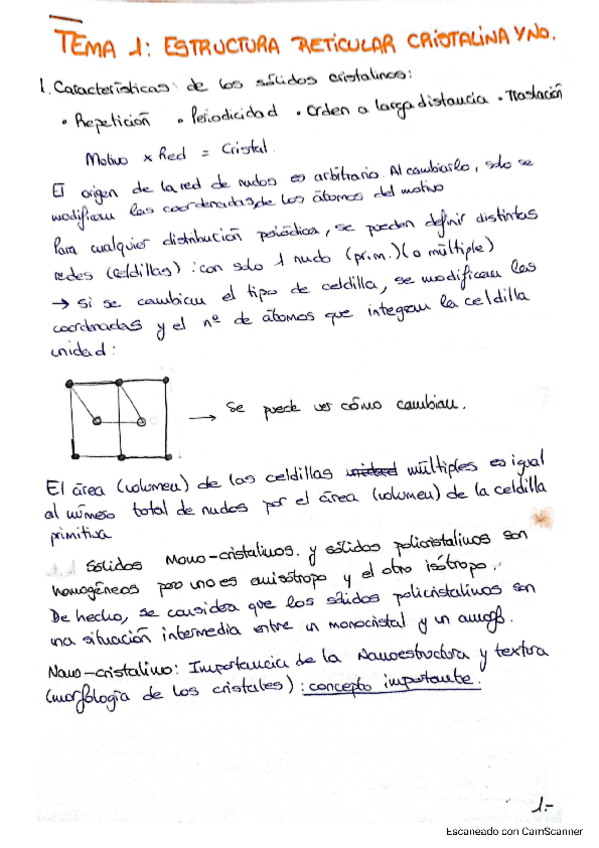 TEMA 1: ESTRUCTURA RETICULAR CRISTALINA Y NO.
1. Características de los sólidos cristalinos:
• Repetición • Periodicidad • Orden a larga distancia • Traslación
Motivo x Red = Cristal
El origen de la red de nudos es arbitrario. Al cambiarlo, solo se
modifican las coordenadas de los átomos del motivo
Para cualquier distribución periódica, se pueden definir distintas
redes (celdillas): con solo 1 nudo (prim.) (o múltiple)
→ si se cambian el tipo de celdilla, se modifican las
coordenadas y el nº de átomos que integran la celdilla
unidad:
→ Se puede ver cómo cambian.
El área (volumen) de las celdillas unidad múltiples es igual
al número total de nudos por el área (volumen) de la celdilla
primitiva
Sólidos Mono-cristalinos. y sólidos policristalinos son
homogéneos pero uno es anisótropo y el otro isótropo.
De hecho, se considera que los sólidos policristalinos son
una situación intermedia entre un monocristal y un amorfo.
Nano-cristalino: Importancia de la Nanoestructura y textura
(morfología de los cristales): concepto importante.
1.-
Escaneado con CamScanner